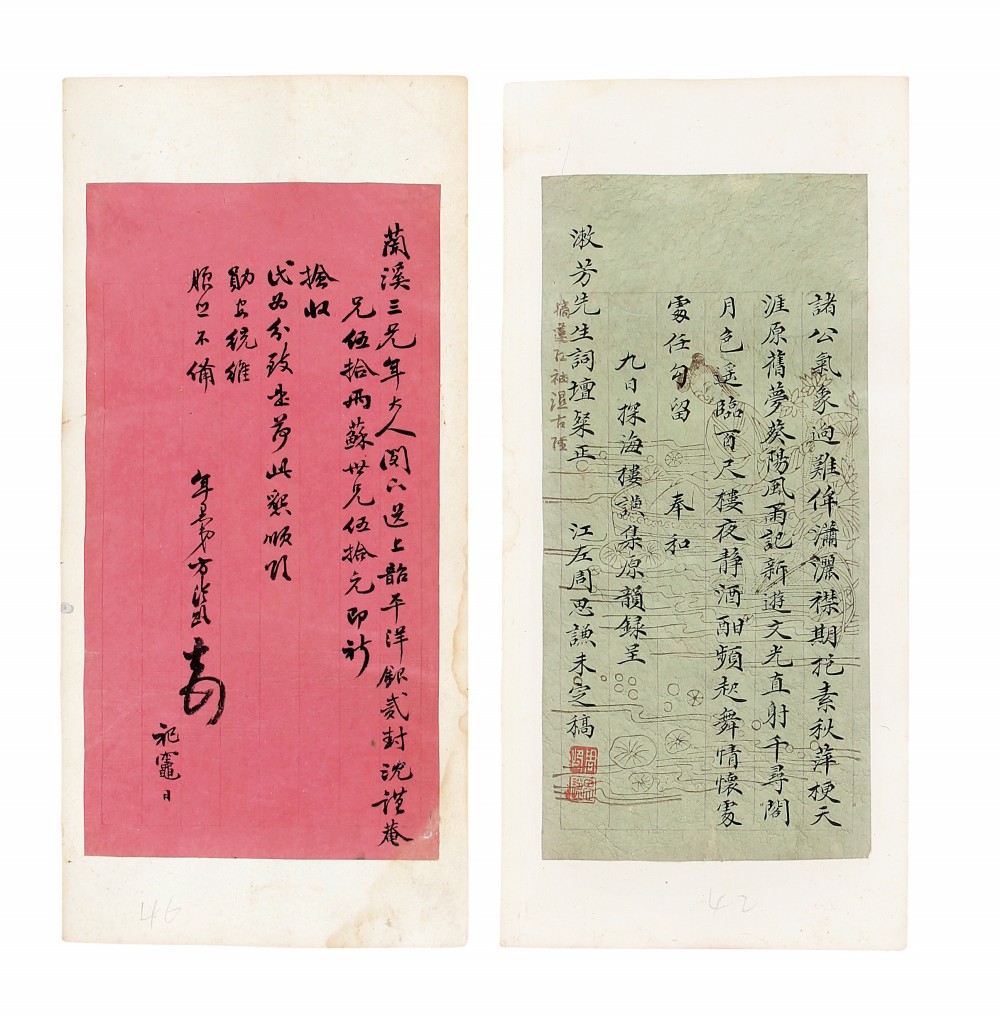 蘭溪三兄年大人閣下送上韶平洋銀貳封沈謹菴
兄伍拾兩蘇世兄伍拾元即祈
撿收
代为分致是荷此懇順頌
勛安統維
不備
年愚弟方
祀竈日
46
諸公氣象迥難侔瀟灑襟期托素秋萍梗天
涯原舊夢葵陽風雨記新遊文光直射千尋閣
月色遥臨百尺樓夜静酒酣頻起舞情懷處
處任勾留 奉和
九日探海樓讌集原韻録呈
漱芳先生詞壇粲正 江左周思謙未定稿
摘蓮紅袖濕
42